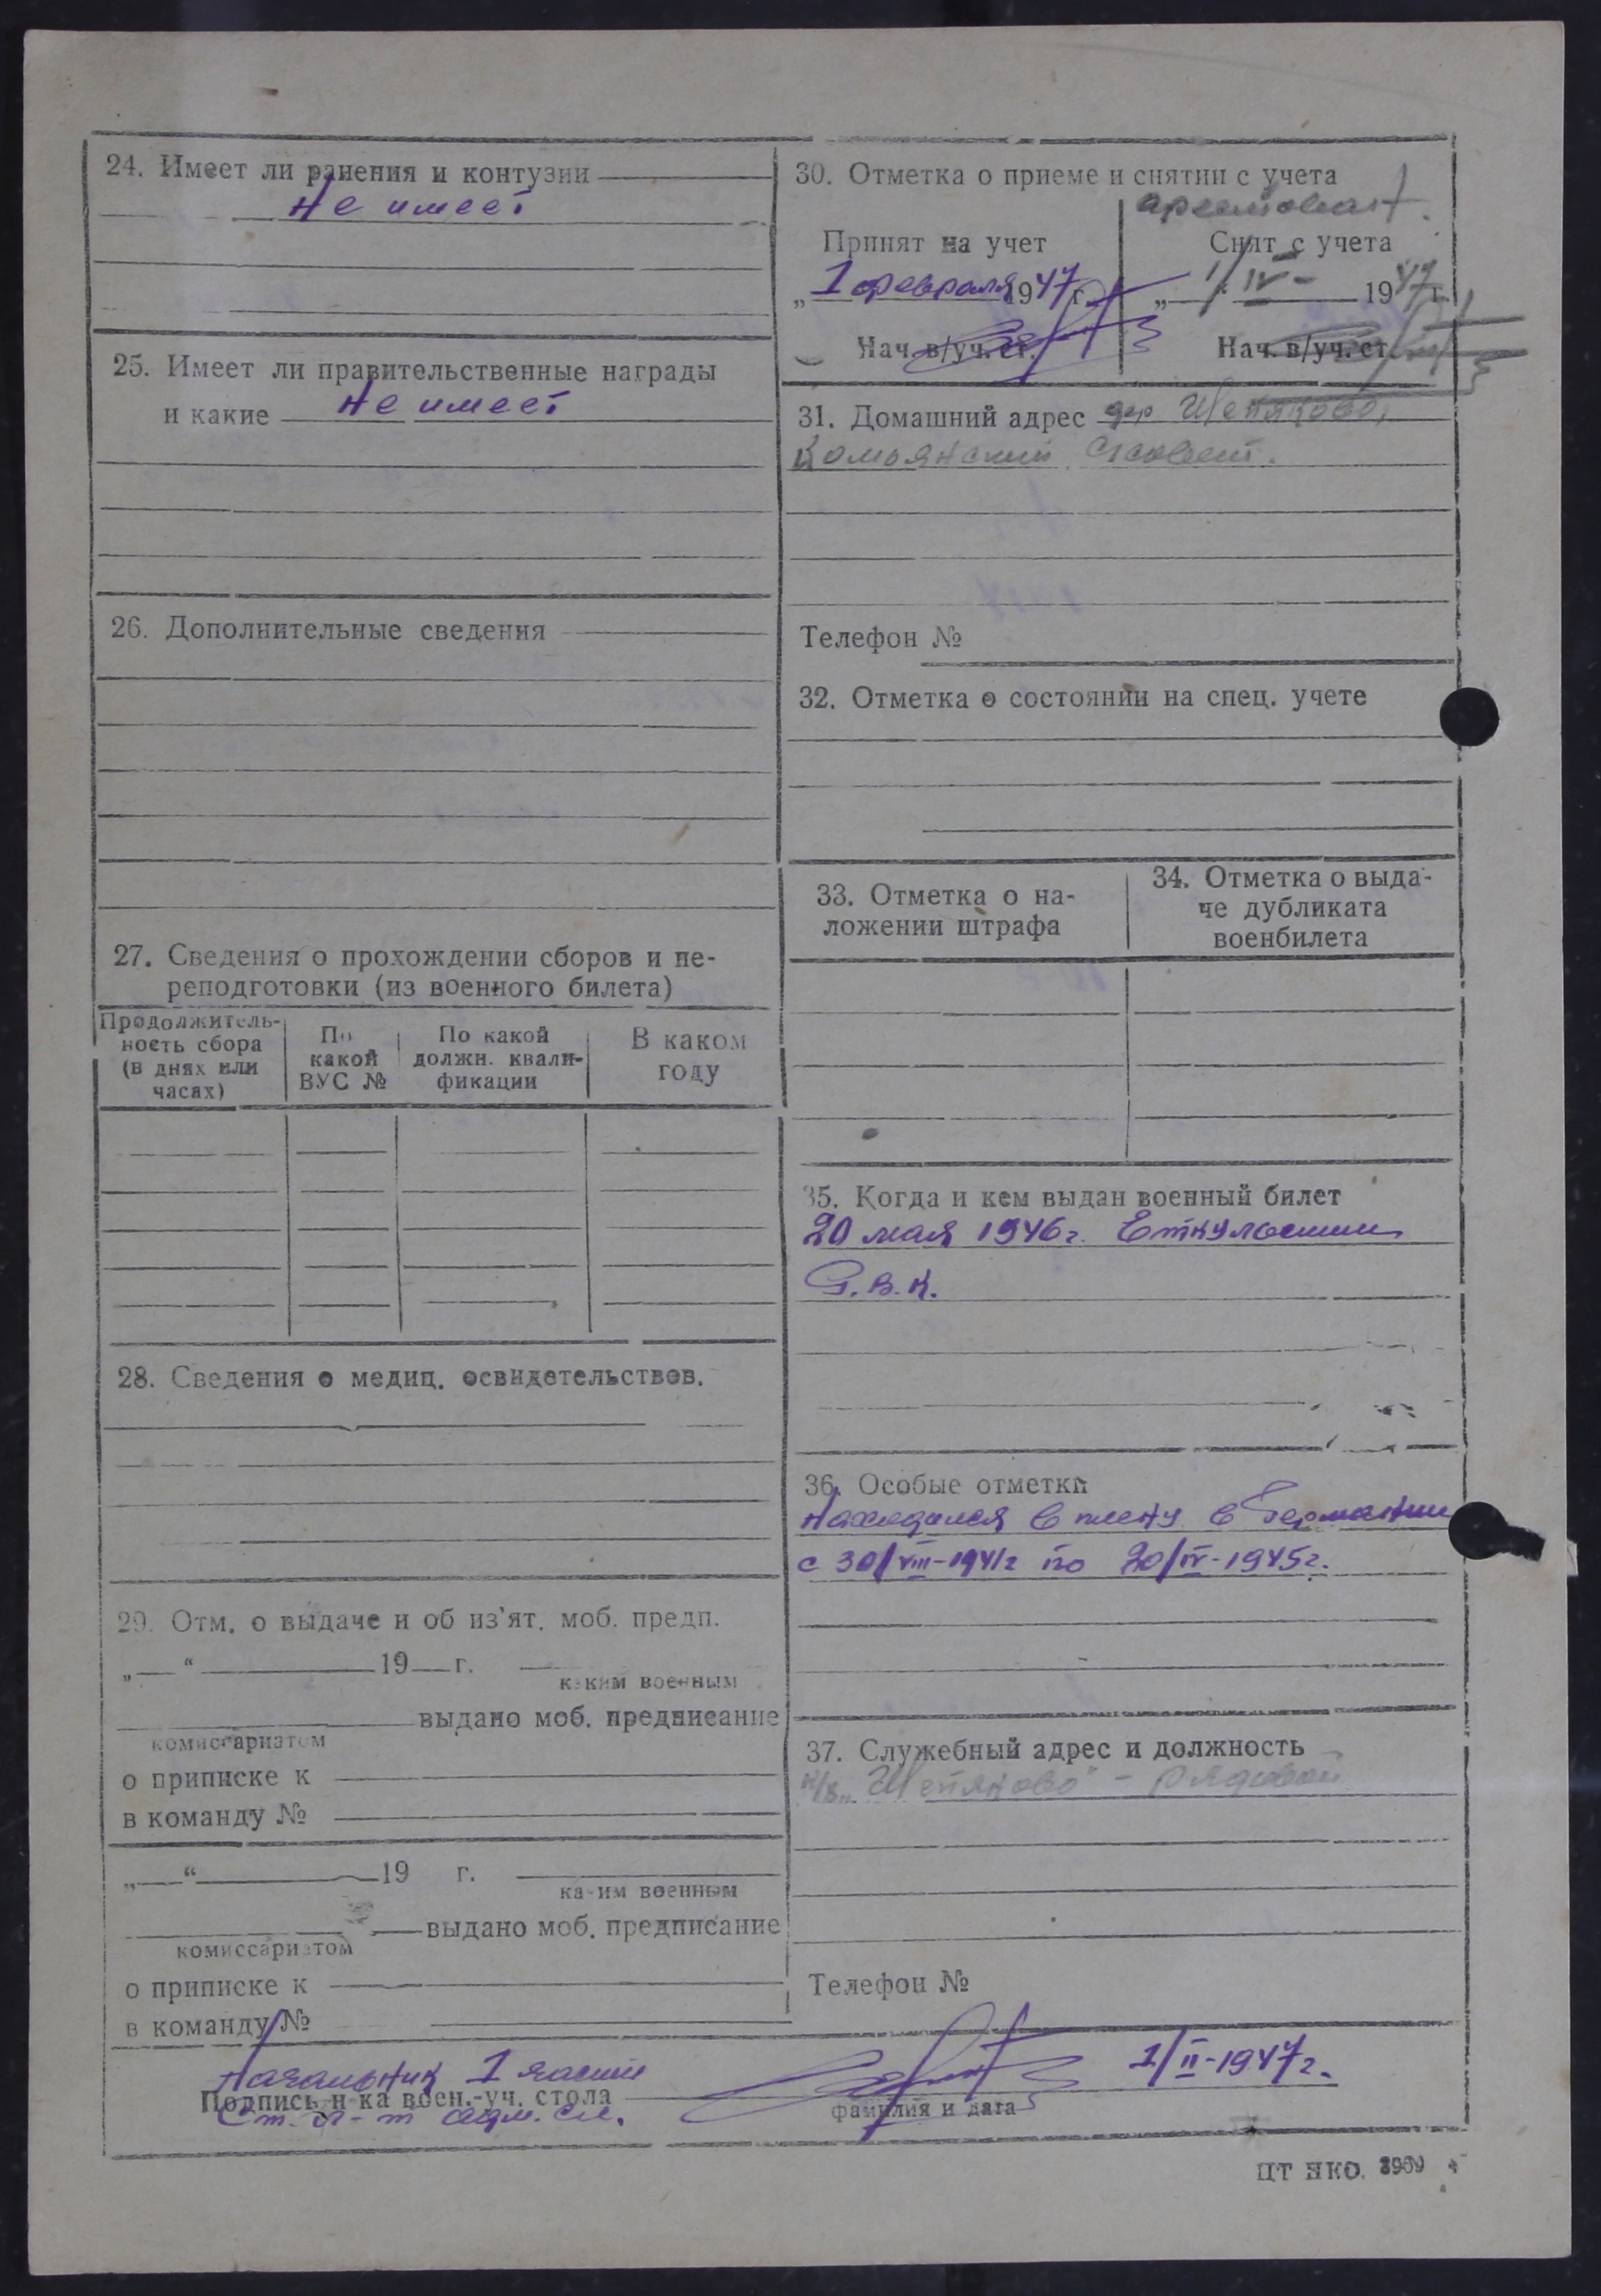 24. Имеет ли ранения и контузии
Не имеет
25. Имеет ли правительственные награды
и какие Не имеет
26. Дополнительные сведения
27. Сведения о прохождении сборов и пе-
реподготовки (из военного билета)
Продолжитель-
ность сбора
(в днях или
часах)
По
какой
ВУС №
По какой
должн. квали-
фикации
В каком
году
28. Сведения о медиц. освидетельствов.
29. Отм. о выдаче и об из'ят. моб. предп.
„ “ 19 г.
каким военным
выдано моб. предписание
комиссариатом
о приписке к
в команду №
„ “ 19 г.
каким военным
выдано моб. предписание
комиссариатом
о приписке к
в команду №
30. Отметка о приеме и снятии с учета
арестован.
Принят на учет
„1 февраля 1947 г.
Нач. в/уч. ст.
Снят с учета
„ 1/IV- 1947 г.
Нач. в/уч. ст.
31. Домашний адрес дер. Щепяково,
с/совет.
Телефон №
32. Отметка о состоянии на спец. учете
33. Отметка о на-
ложении штрафа
34. Отметка о выда-
че дубликата
военбилета
35. Когда и кем выдан военный билет
20 мая 1946 г. Еткульским
Р.В.К.
36. Особые отметки
Находился в плену в Германии
с 30/VIII-1941 г по 20/IV-1945 г.
37. Служебный адрес и должность
к/з „Щепяково" - рядовой
Телефон №
Начальник 1 части
Подпись н-ка воен.-уч. стола
Ст. л-т адм. сл.
1/II-1947 г.
фамилия и дата
ЦТ НКО. 3969